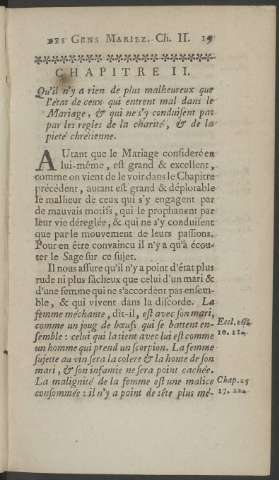 DES GENS MARIEZ. Ch. II.
CHAPITRE II.
Qu'il n'y a rien de plus malheureux que
l'état de ceux qui entrent mal dans le
Mariage, & qui ne s'y conduisent pas
par les regles de la charité, & de la
pieté chrétienne.
AUtant que le Mariage consideré en
lui-même, est grand & excellent,
comme on vient de le voir dans le Chapitre
précédent, autant est grand & déplorable
le malheur de ceux qui s'y engagent par
de mauvais motifs, qui le prophanent par
leur vie déreglée, & qui ne s'y conduisent
que par le mouvement de leurs passions.
Pour en être convaincu il n'y a qu'à écou-
ter le Sage sur ce sujet.
Il nous assure qu'il n'y a point d'état plus
rude ni plus fâcheux que celui d'un mari &
d'une femme qui ne s'accordent pas ensem-
ble, & qui vivent dans la discorde. La
femme méchante, dit-il, est avec son mari,
comme un joug de bœufs qui se battent en-
semble : celui qui la tient avec lui est comme
un homme qui prend un scorpion. La femme
sujette au vin sera la colere & la honte de son
mari, & son infamie ne sera point cachée.
La malignité de la femme est une malice
consommée : il n'y a point de tête plus mé-
Eccl.
Chap. 25